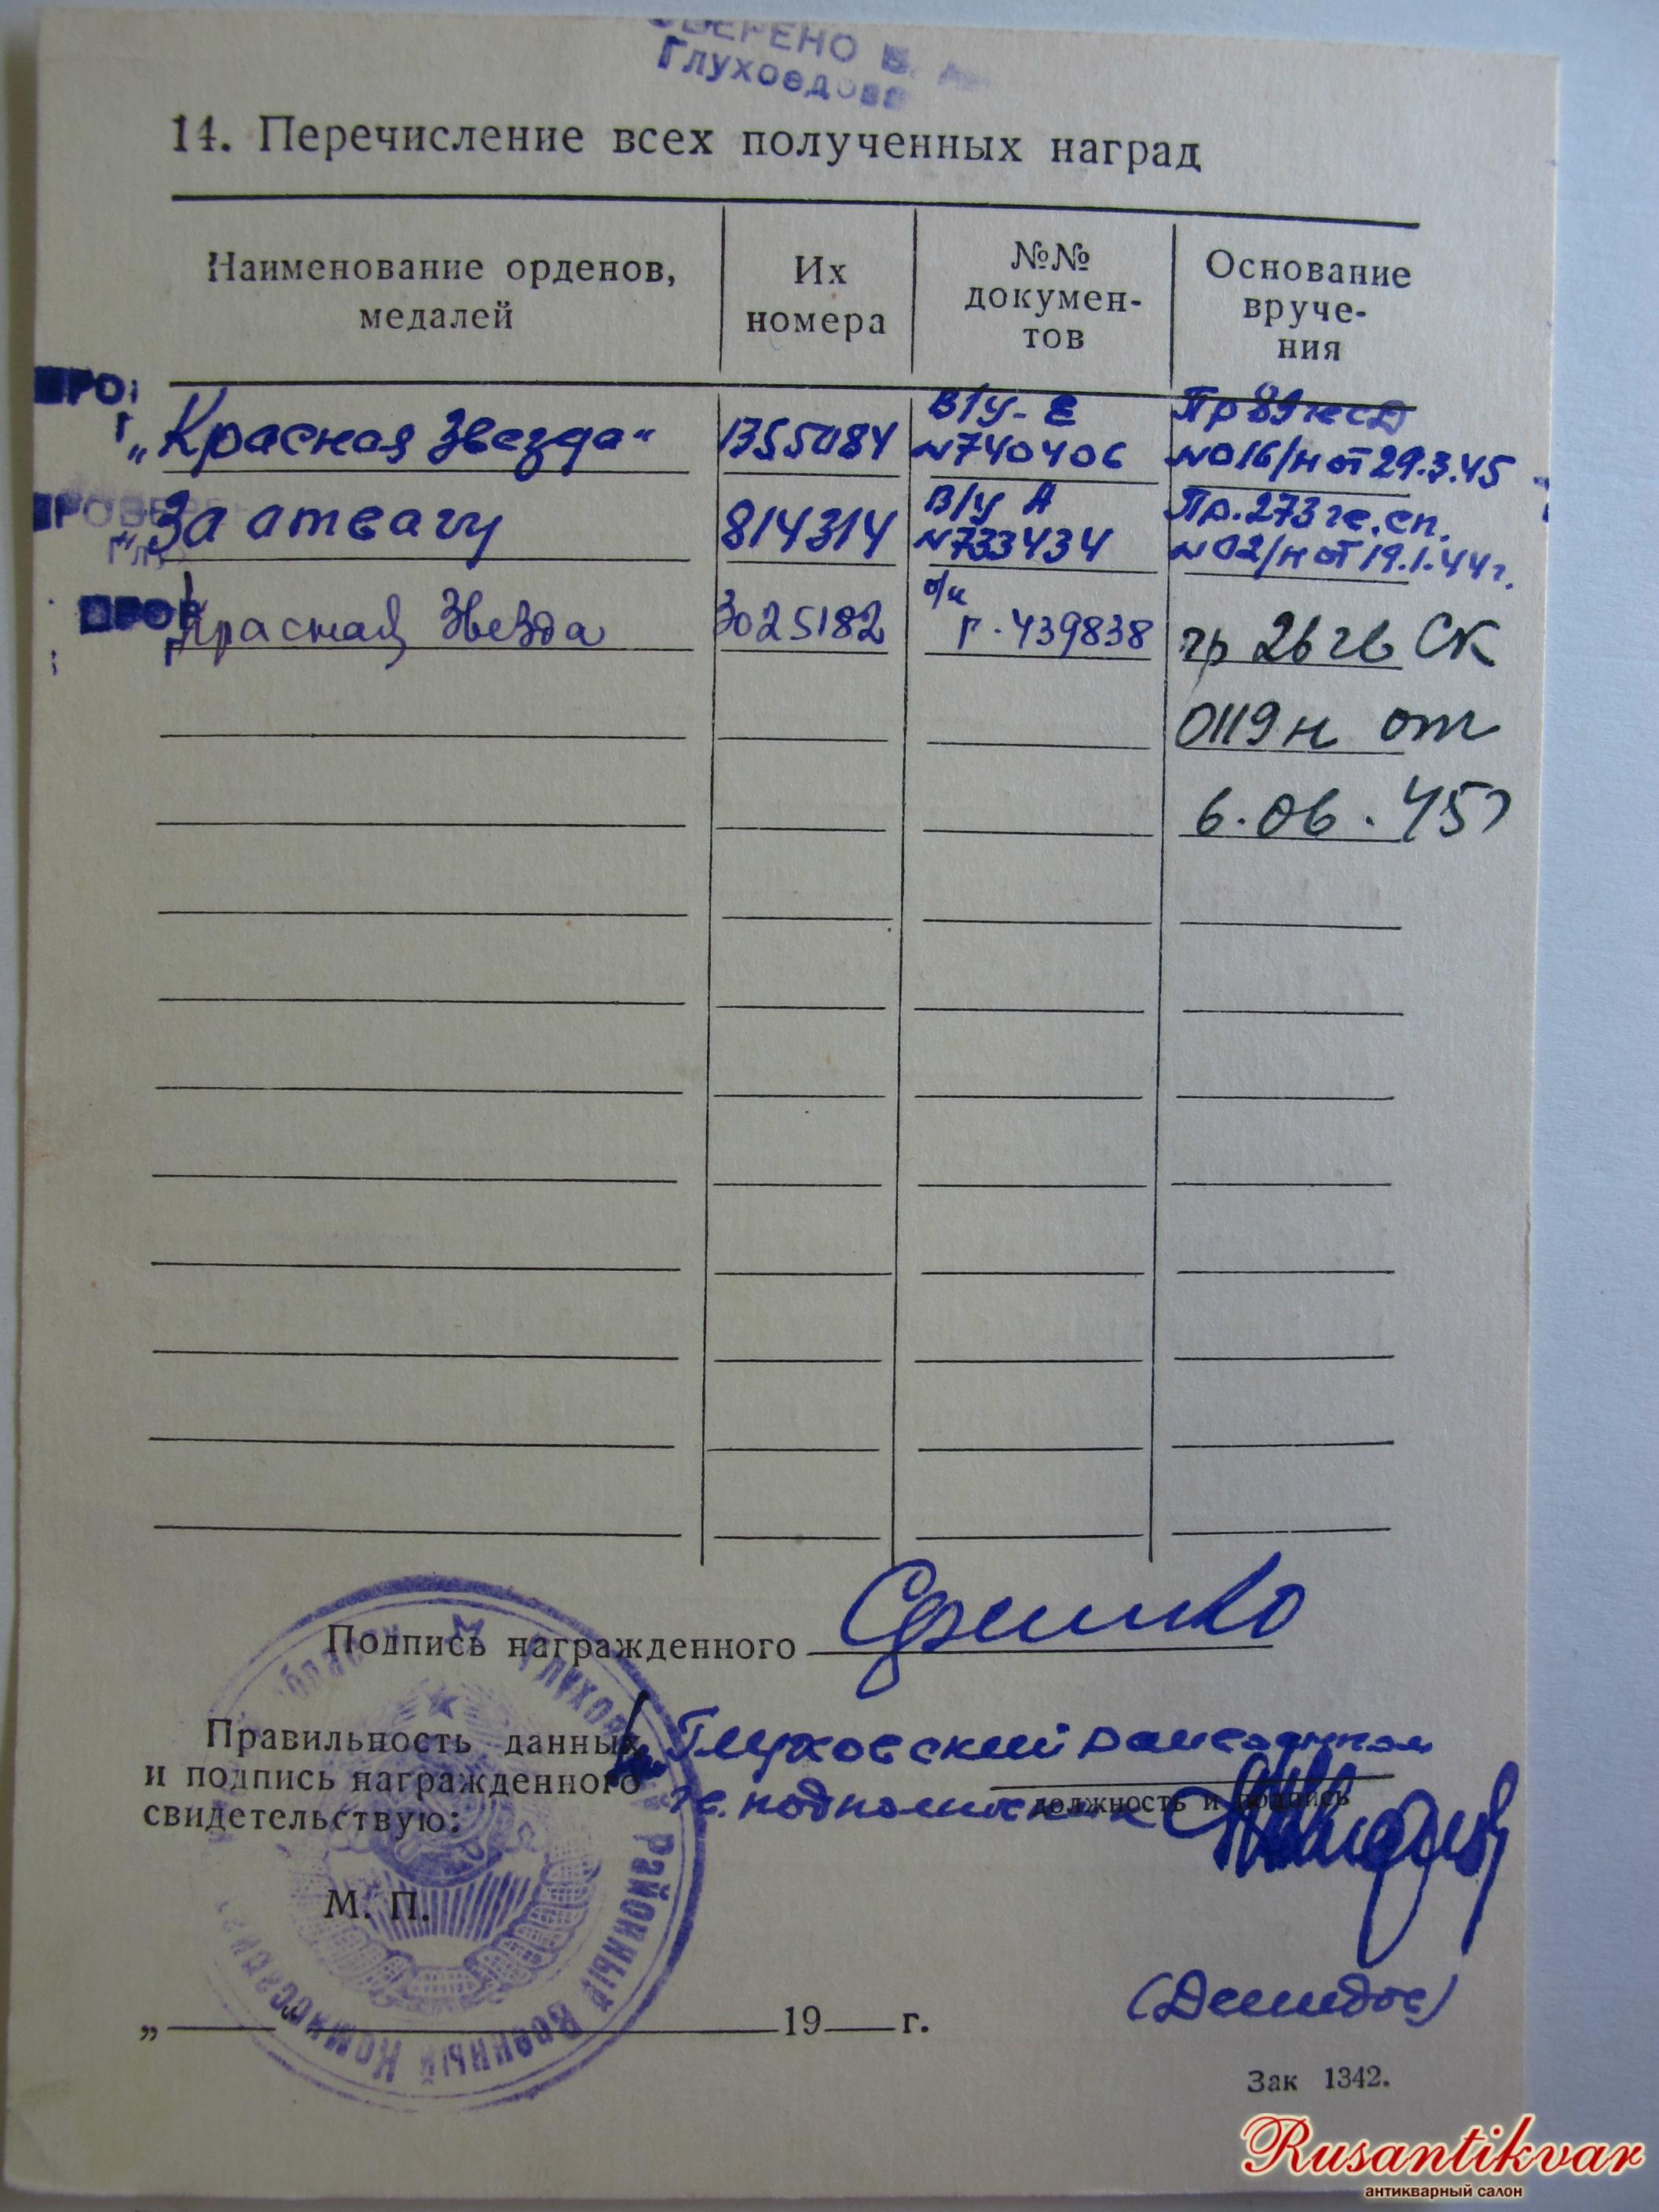 Глухоедова
14. Перечисление всех полученных наград
Наименование орденов,
медалей
Их
номера
№№
докумен-
тов
Основание
вруче-
ния
„Красная Звезда“ 1355084
В/у - Е
№740406
Пр 89 гк сд
№016/н от 29.3.45
За отвагу 814314
В/у А
№733434
Пр. 273 гв. сп.
№02/н от 19.1.44г.
Красная Звезда 3025182
о/к
Г-439838
пр 26 гв СК
0119н от
6.06.45г
Подпись награжденного
Правильность данных
и подпись награжденного
свидетельствую:
Глуховский райвоенком
гв. подполковник
должность и подпись
М. П.
Районный Военный Комиссариат
(Демидов)
„ 19 г.
Зак 1342.
Rusantikvar
антикварный салон